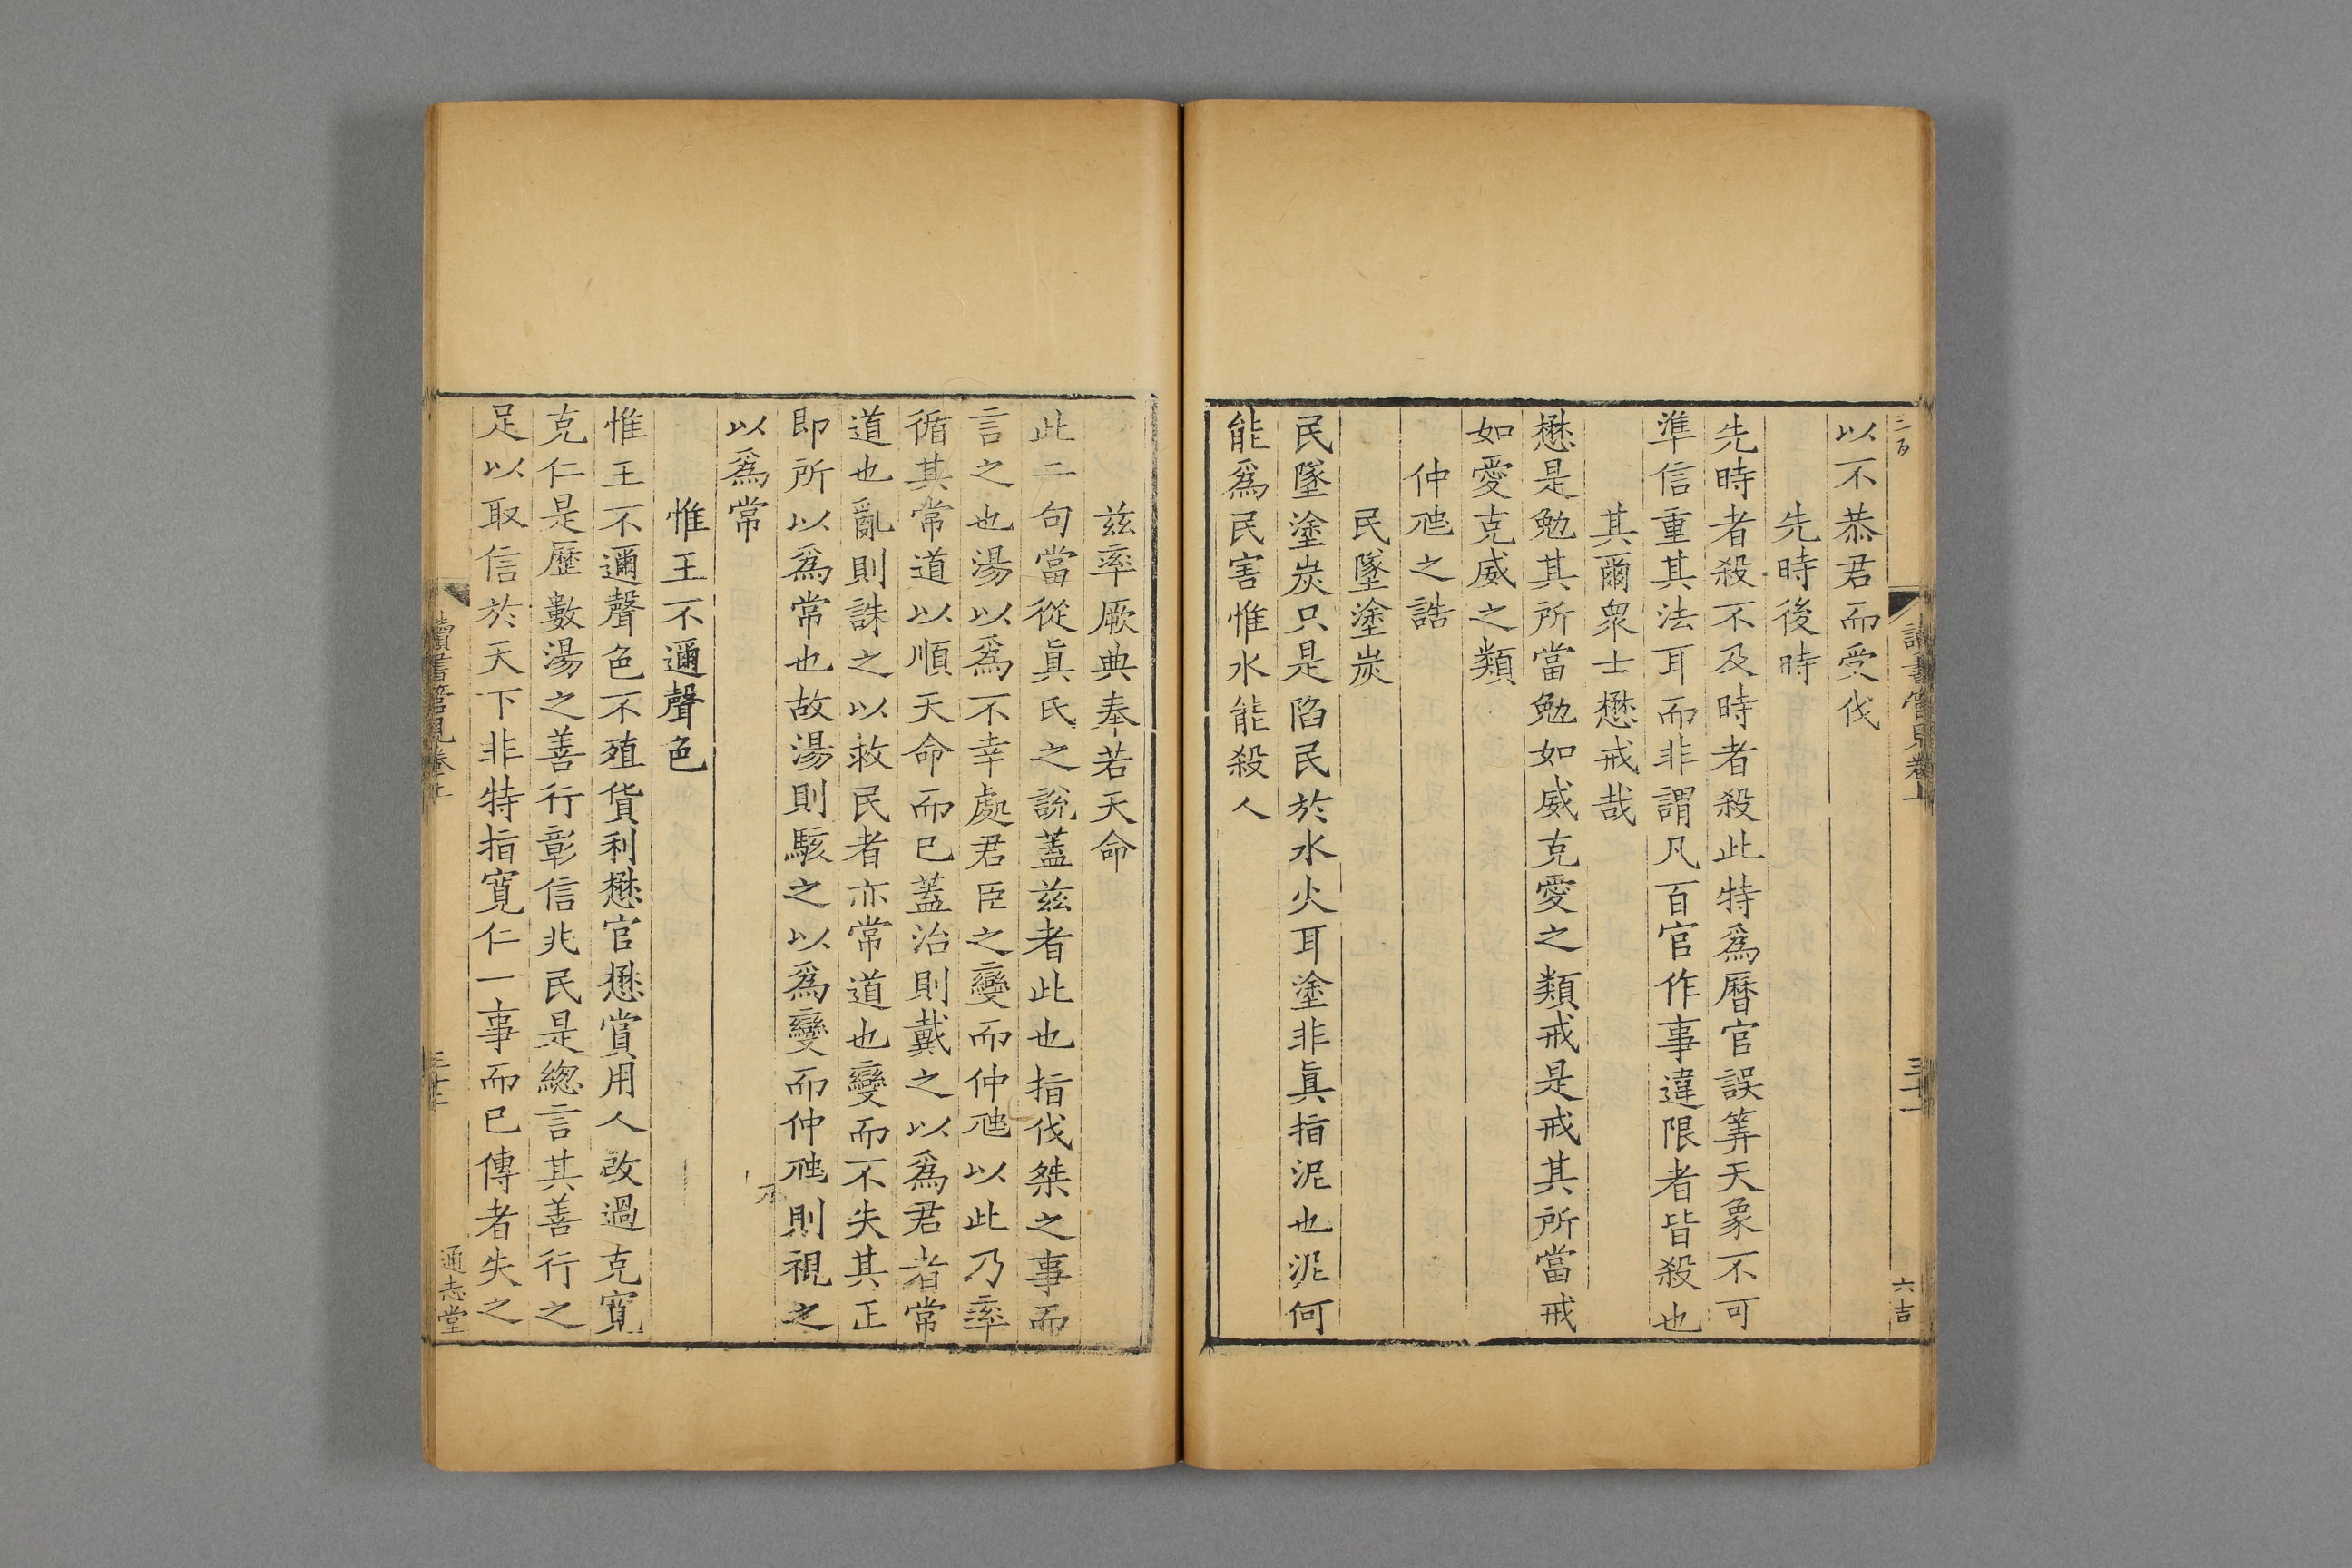 三百
讀書管見卷上
三十一
六吉
以不恭君而受伐
先時後時
先時者殺不及時者殺此特爲曆官誤筭天象不可
準信重其法耳而非謂凡百官作事違限者皆殺也
其爾衆士懋戒哉
懋是勉其所當勉如威克愛之類戒是戒其所當戒
如愛克威之類
仲虺之誥
民墜塗炭
民墜塗炭只是陷民於水火耳塗非眞指泥也泥何
能爲民害惟水能殺人
兹率厥典奉若天命
此二句當從眞氏之説蓋兹者此也指伐桀之事而
言之也湯以爲不幸處君臣之變而仲虺以此乃率
循其常道以順天命而已蓋治則戴之以爲君者常
道也亂則誅之以救民者亦常道也變而不失其正
即所以爲常也故湯則駭之以爲變而仲虺則視之
以爲常
惟王不邇聲色
惟王不邇聲色不殖貨利懋官懋賞用人改過克寬
克仁是歷數湯之善行彰信兆民是緫言其善行之
足以取信於天下非特指寬仁一事而已傳者失之
讀書管見卷上
通志堂